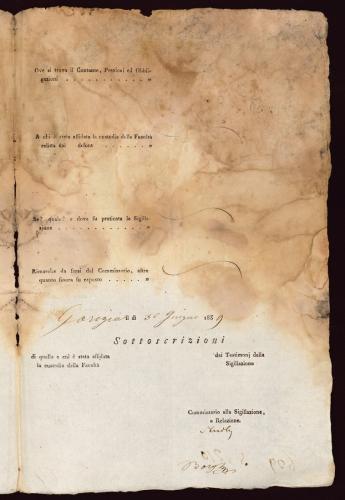 Ove si trova il Contante, Preziosi ed Obbli-
gazioni . . . . . . . . . . . "
A chi è stata affidata la custodia della Facoltà
relitta dai defont . . . . . . "
Se? quale? e dove fu praticata la Sigilla-
zione . . . . . . . . . . . "
Ricerche da farsi dal Commissario, oltre
quanto finora fu esposto . . . . . "
li di 30 Giugno 1839
Sottoscrizioni
di quello a cui è stata affidata
la custodia della Facoltà
dei Testimonj della
Sigillazione
Commissario alla Sigillazione,
e Relazione.